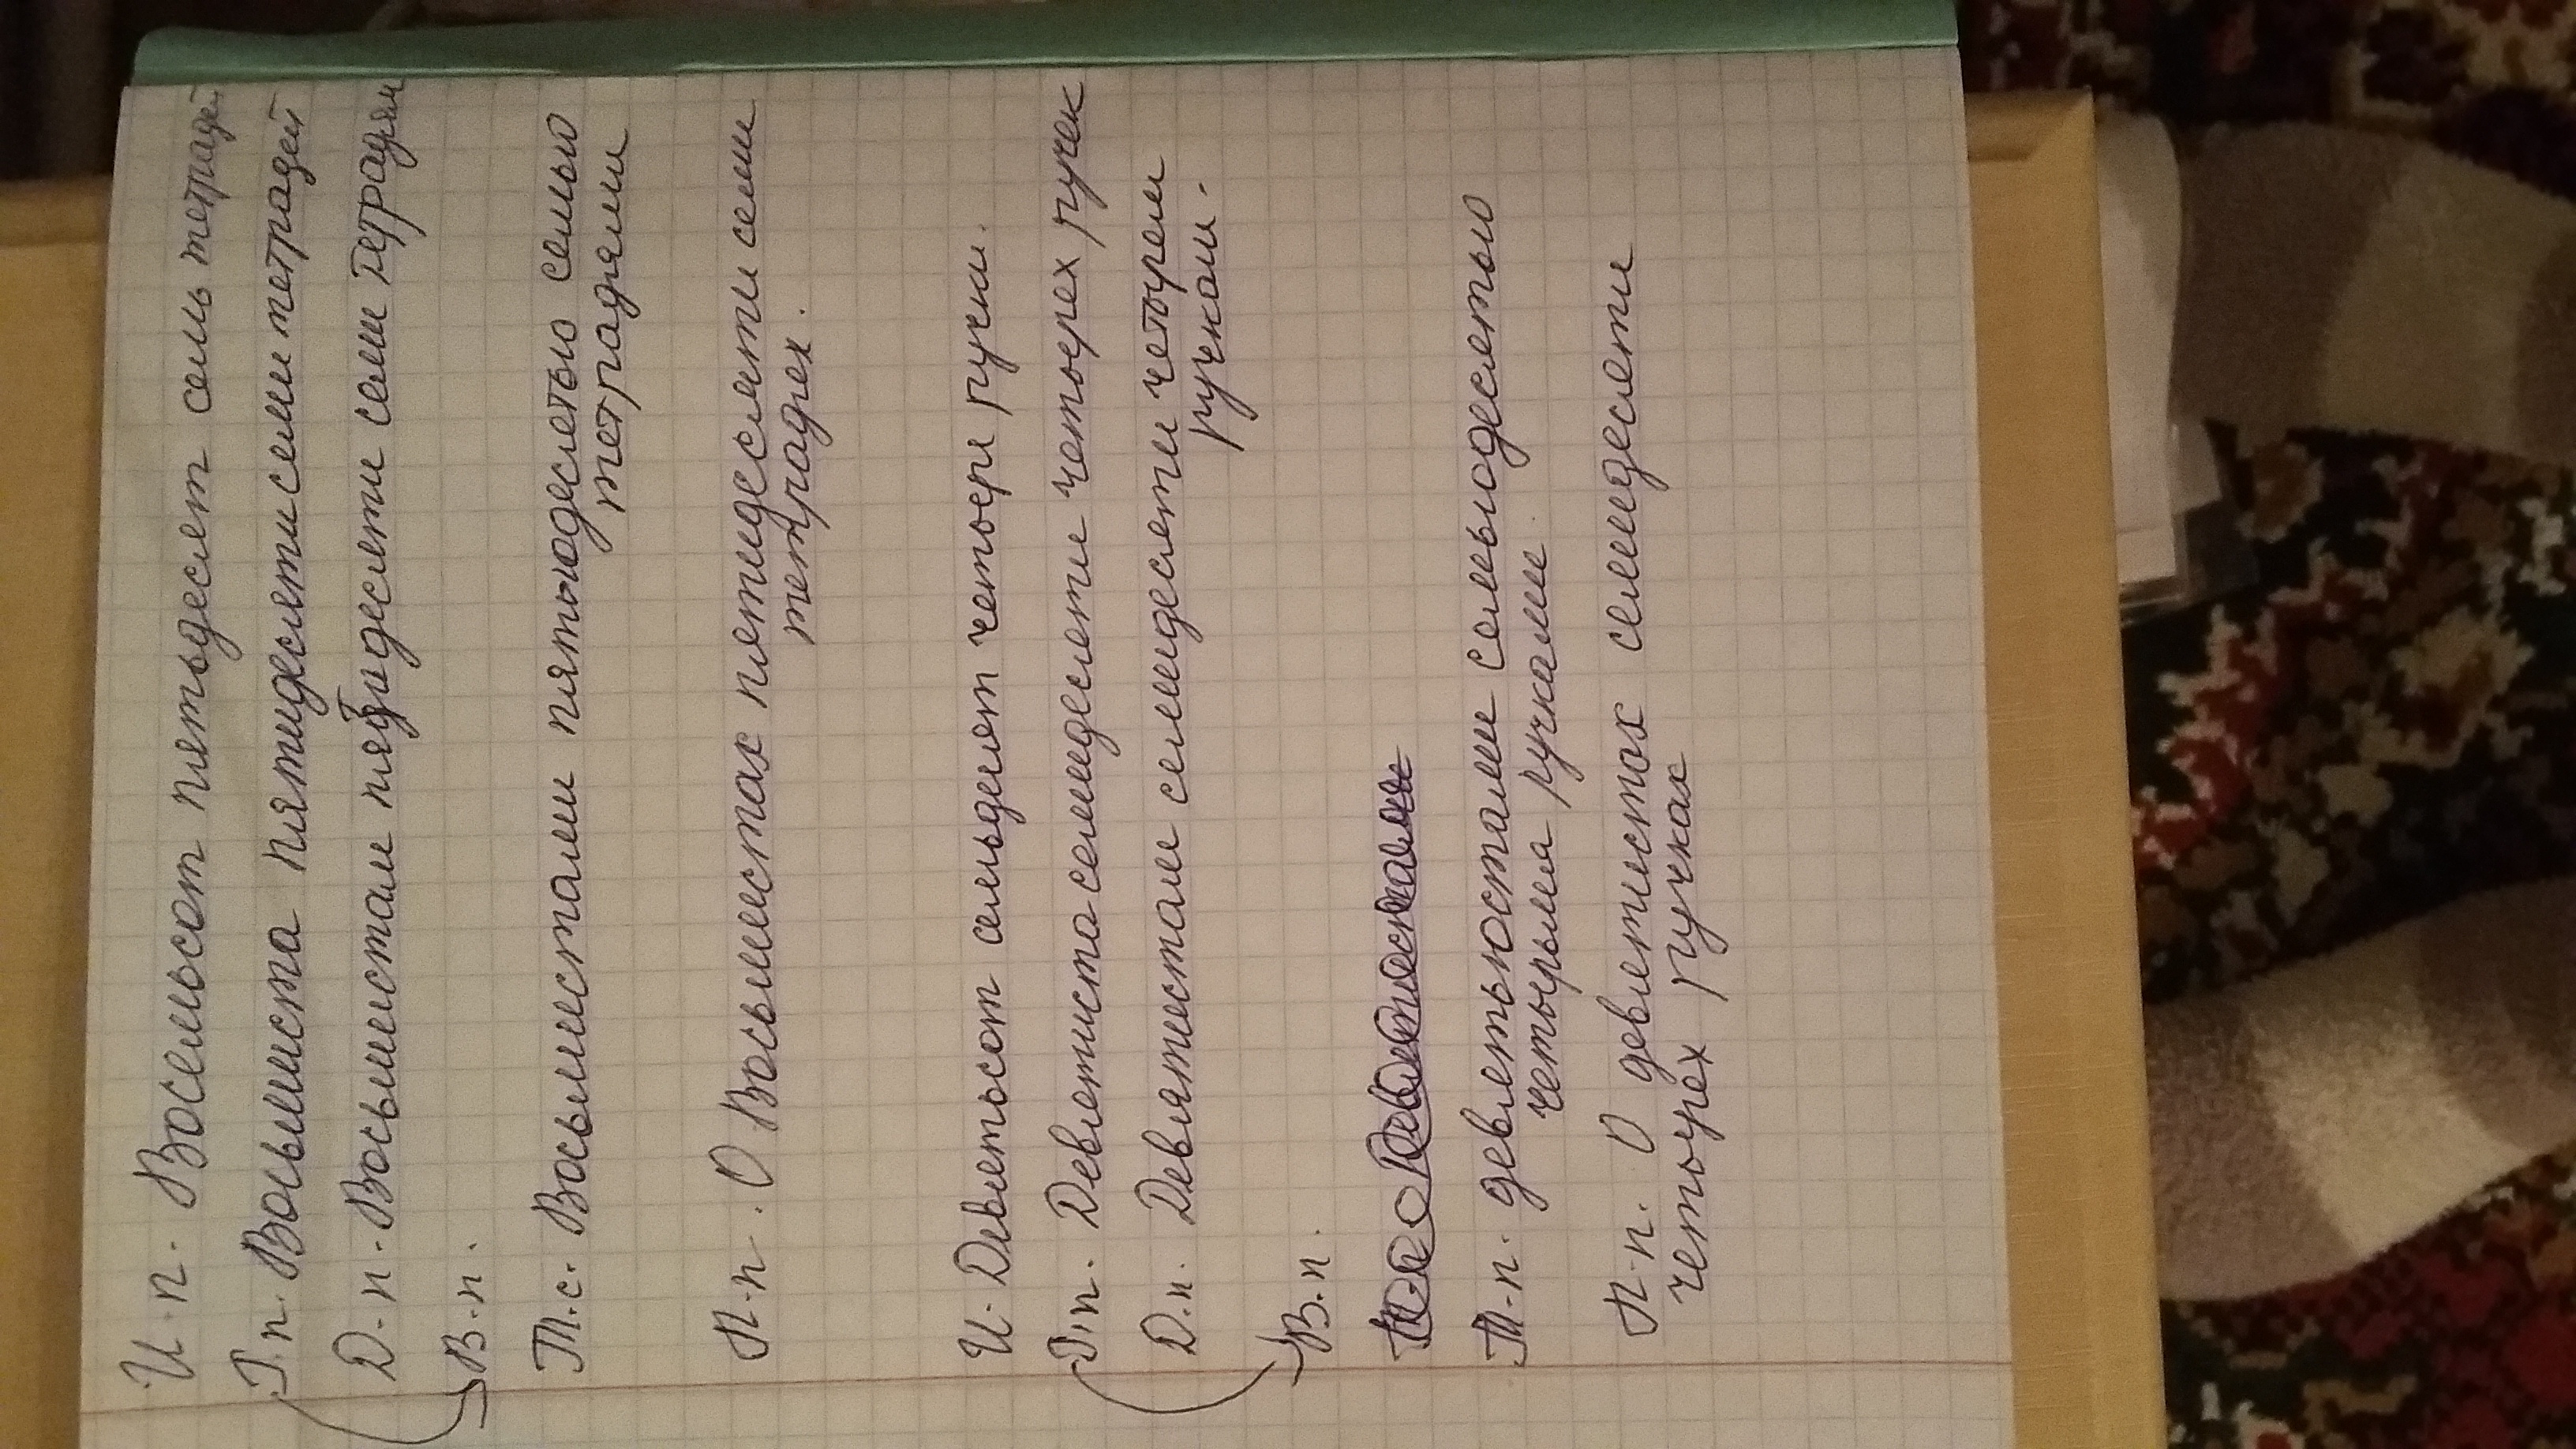 И.п. Восемьсот пятьдесят семь тетрадей
Г.п. Восьмиста пятидесяти семи тетрадей
Д.п. Восьмистам пятидесяти семи тетрадям
В.п.
Т.с. Восьмистами пятьюдесятью семью
тетрадями
П.п. О Восьмистах пятидесяти семи
тетрадях.
И. Девятьсот семьдесят четыре ручки.
Г.п. Девятиста семидесяти четырех ручек
Д.п. Девятистам семидесяти четырем
ручкам.
В.п.
Т.п. девятьюстами семьюдесятью
четырьмя ручками.
П.п. О девятистах семидесяти
четырех ручках